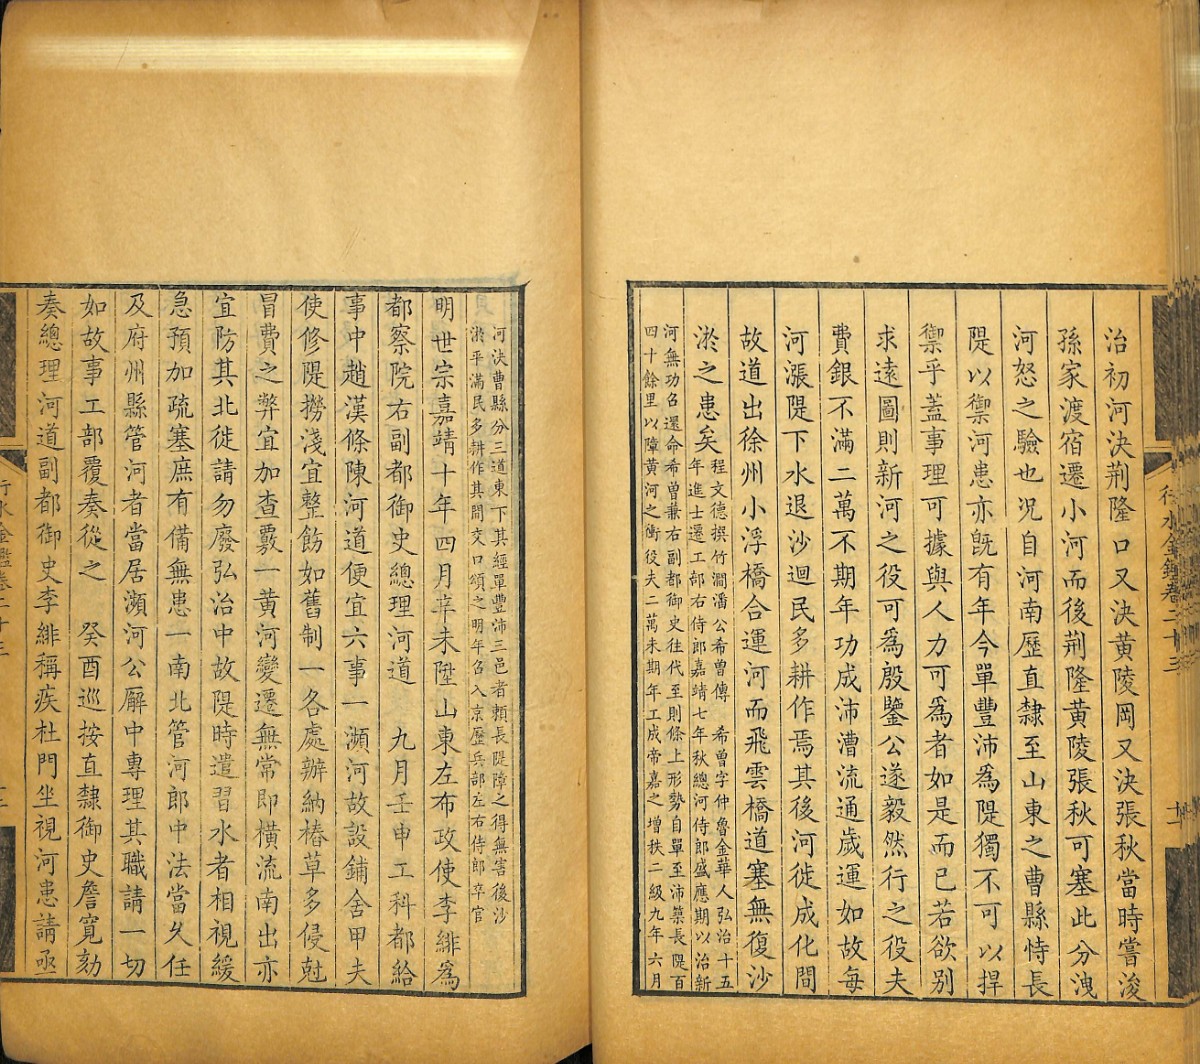 治初河決荆隆口又決黃陵岡又決張秋當時嘗浚
孫家渡宿遷小河而後荆隆黃陵張秋可塞此分洩
河怒之驗也況自河南歷直隸至山東之曹縣恃長
隄以禦河患亦旣有年今單豐沛爲隄獨不可以捍
禦乎蓋事理可據與人力可爲者如是而已若欲別
求遠圖則新河之役可爲殷鑒公遂毅然行之役夫
費銀不滿二萬不期年功成沛漕流通歲運如故每
河漲隄下水退沙迴民多耕作焉其後河徙成化間
故道出徐州小浮橋合運河而飛雲橋道塞無復沙
淤之患矣程文德撰竹澗潘公希曾傳 希曾字仲魯金華人弘治十五
年進士遷工部右侍郎嘉靖七年秋總河侍郎盛應期以治新
河無功召還命希曾兼右副都御史往代至則條上形勢自單至沛築長隄百
四十餘里以障黃河之衝役夫二萬未期年工成帝嘉之增秩二級九年六月
行水金鑑卷二十三
十一
河決曹縣分三道東下其經單豐沛三邑者賴長隄障之得無害後沙
淤平滿民多耕作其間交口頌之明年召入京歷兵部左右侍郎卒官
明世宗嘉靖十年四月辛未陞山東左布政使李緋爲
都察院右副都御史總理河道 九月壬申工科都給
事中趙漢條陳河道便宜六事一瀕河故設鋪舍甲夫
使修隄撈淺宜整飭如舊制一各處辦納樁草多侵尅
冒費之弊宜加查覈一黃河變遷無常即橫流南出亦
宜防其北徙請勿廢弘治中故隄時遣習水者相視緩
急預加疏塞庶有備無患一南北管河郎中法當久任
及府州縣管河者當居瀕河公廨中專理其職請一切
如故事工部覆奏從之 癸酉巡按直隸御史詹寬劾
奏總理河道副都御史李緋稱疾杜門坐視河患請亟
行水金鑑卷二十三